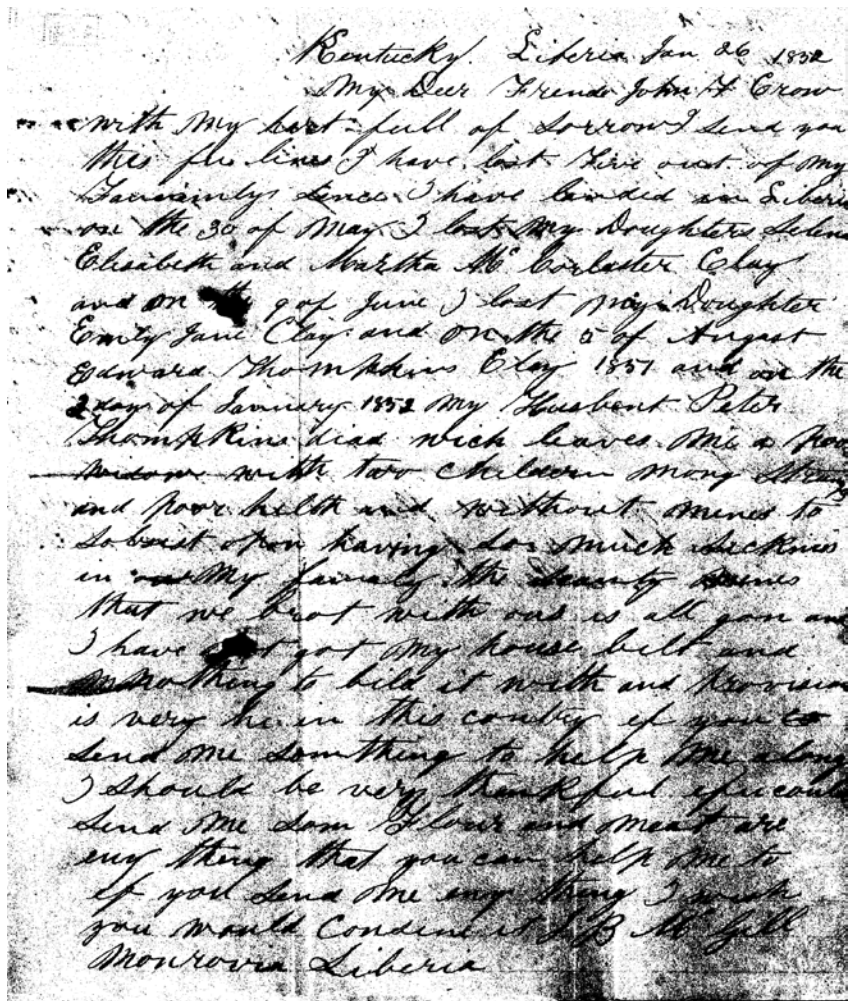 Kentucky. Liberia Jan 26 1852
My Deer Frends John F Crow
with my hart full of sorrow I send you
this fu lines I have lost Five out of my
Faimily since I have landed in Liberia
on the 30 of May I lost my Doughters Selena
Elisabeth and Martha Mc Clay
and on the 9 of June I lost my Doughter
Emily Jane Clay and on the 5 of August
Edward Thompkins Clay 1851 and on the
2 day of January 1852 my Husbent Peter
Thompkins diad wich leaves me a poor
widow with two childern mong
and poor helth and without menes to
Subsist opon having so much sicknes
in my faimaly the scanty menes
that we brot with ous is all gon and
I have not got my house bilt and
nothing to bild it with and provision
is very hi in this contry if you
send me somthing to help me along
I should be very thenkful if u could
send me som Flour and meat are
eny thing that you can help me to
if you send me eny thing I wish
you would Condine it J B Mc Gill
Monrovia Liberia